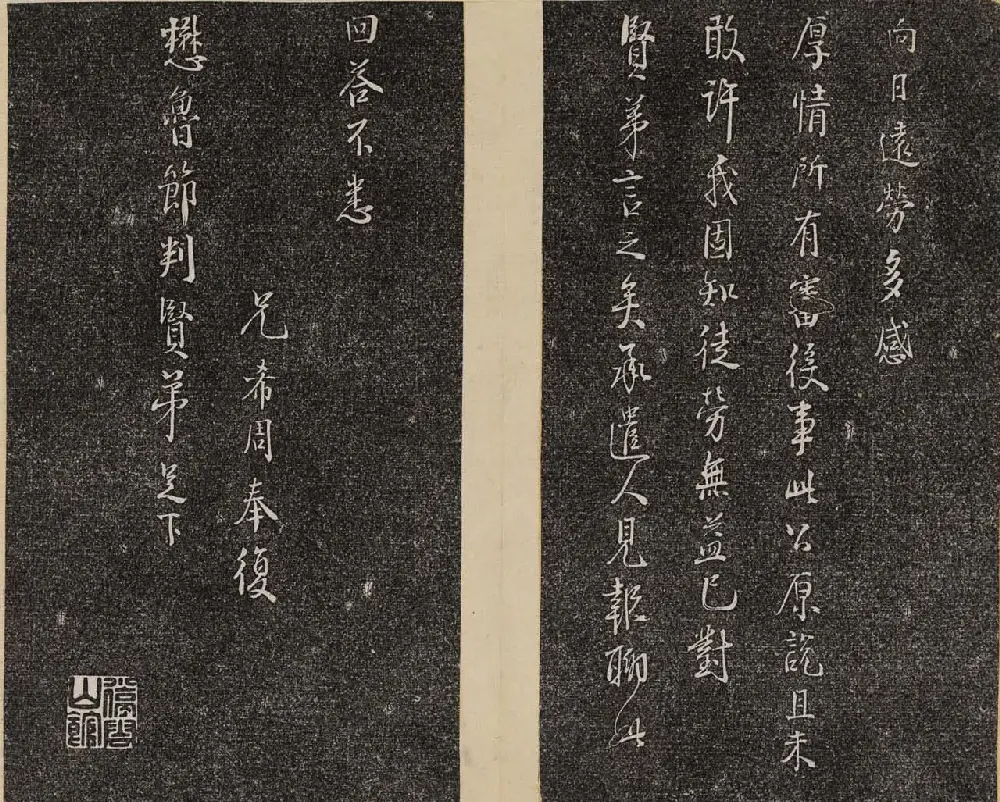 向日遠勞多感
厚情所有嵛後事此公原說且未
敢許我固知徒勞無益已對
賢弟言之矣承遣人見報聊此
回答不悉
兄希周奉復
懋魯節判賢弟足下
停雲山館